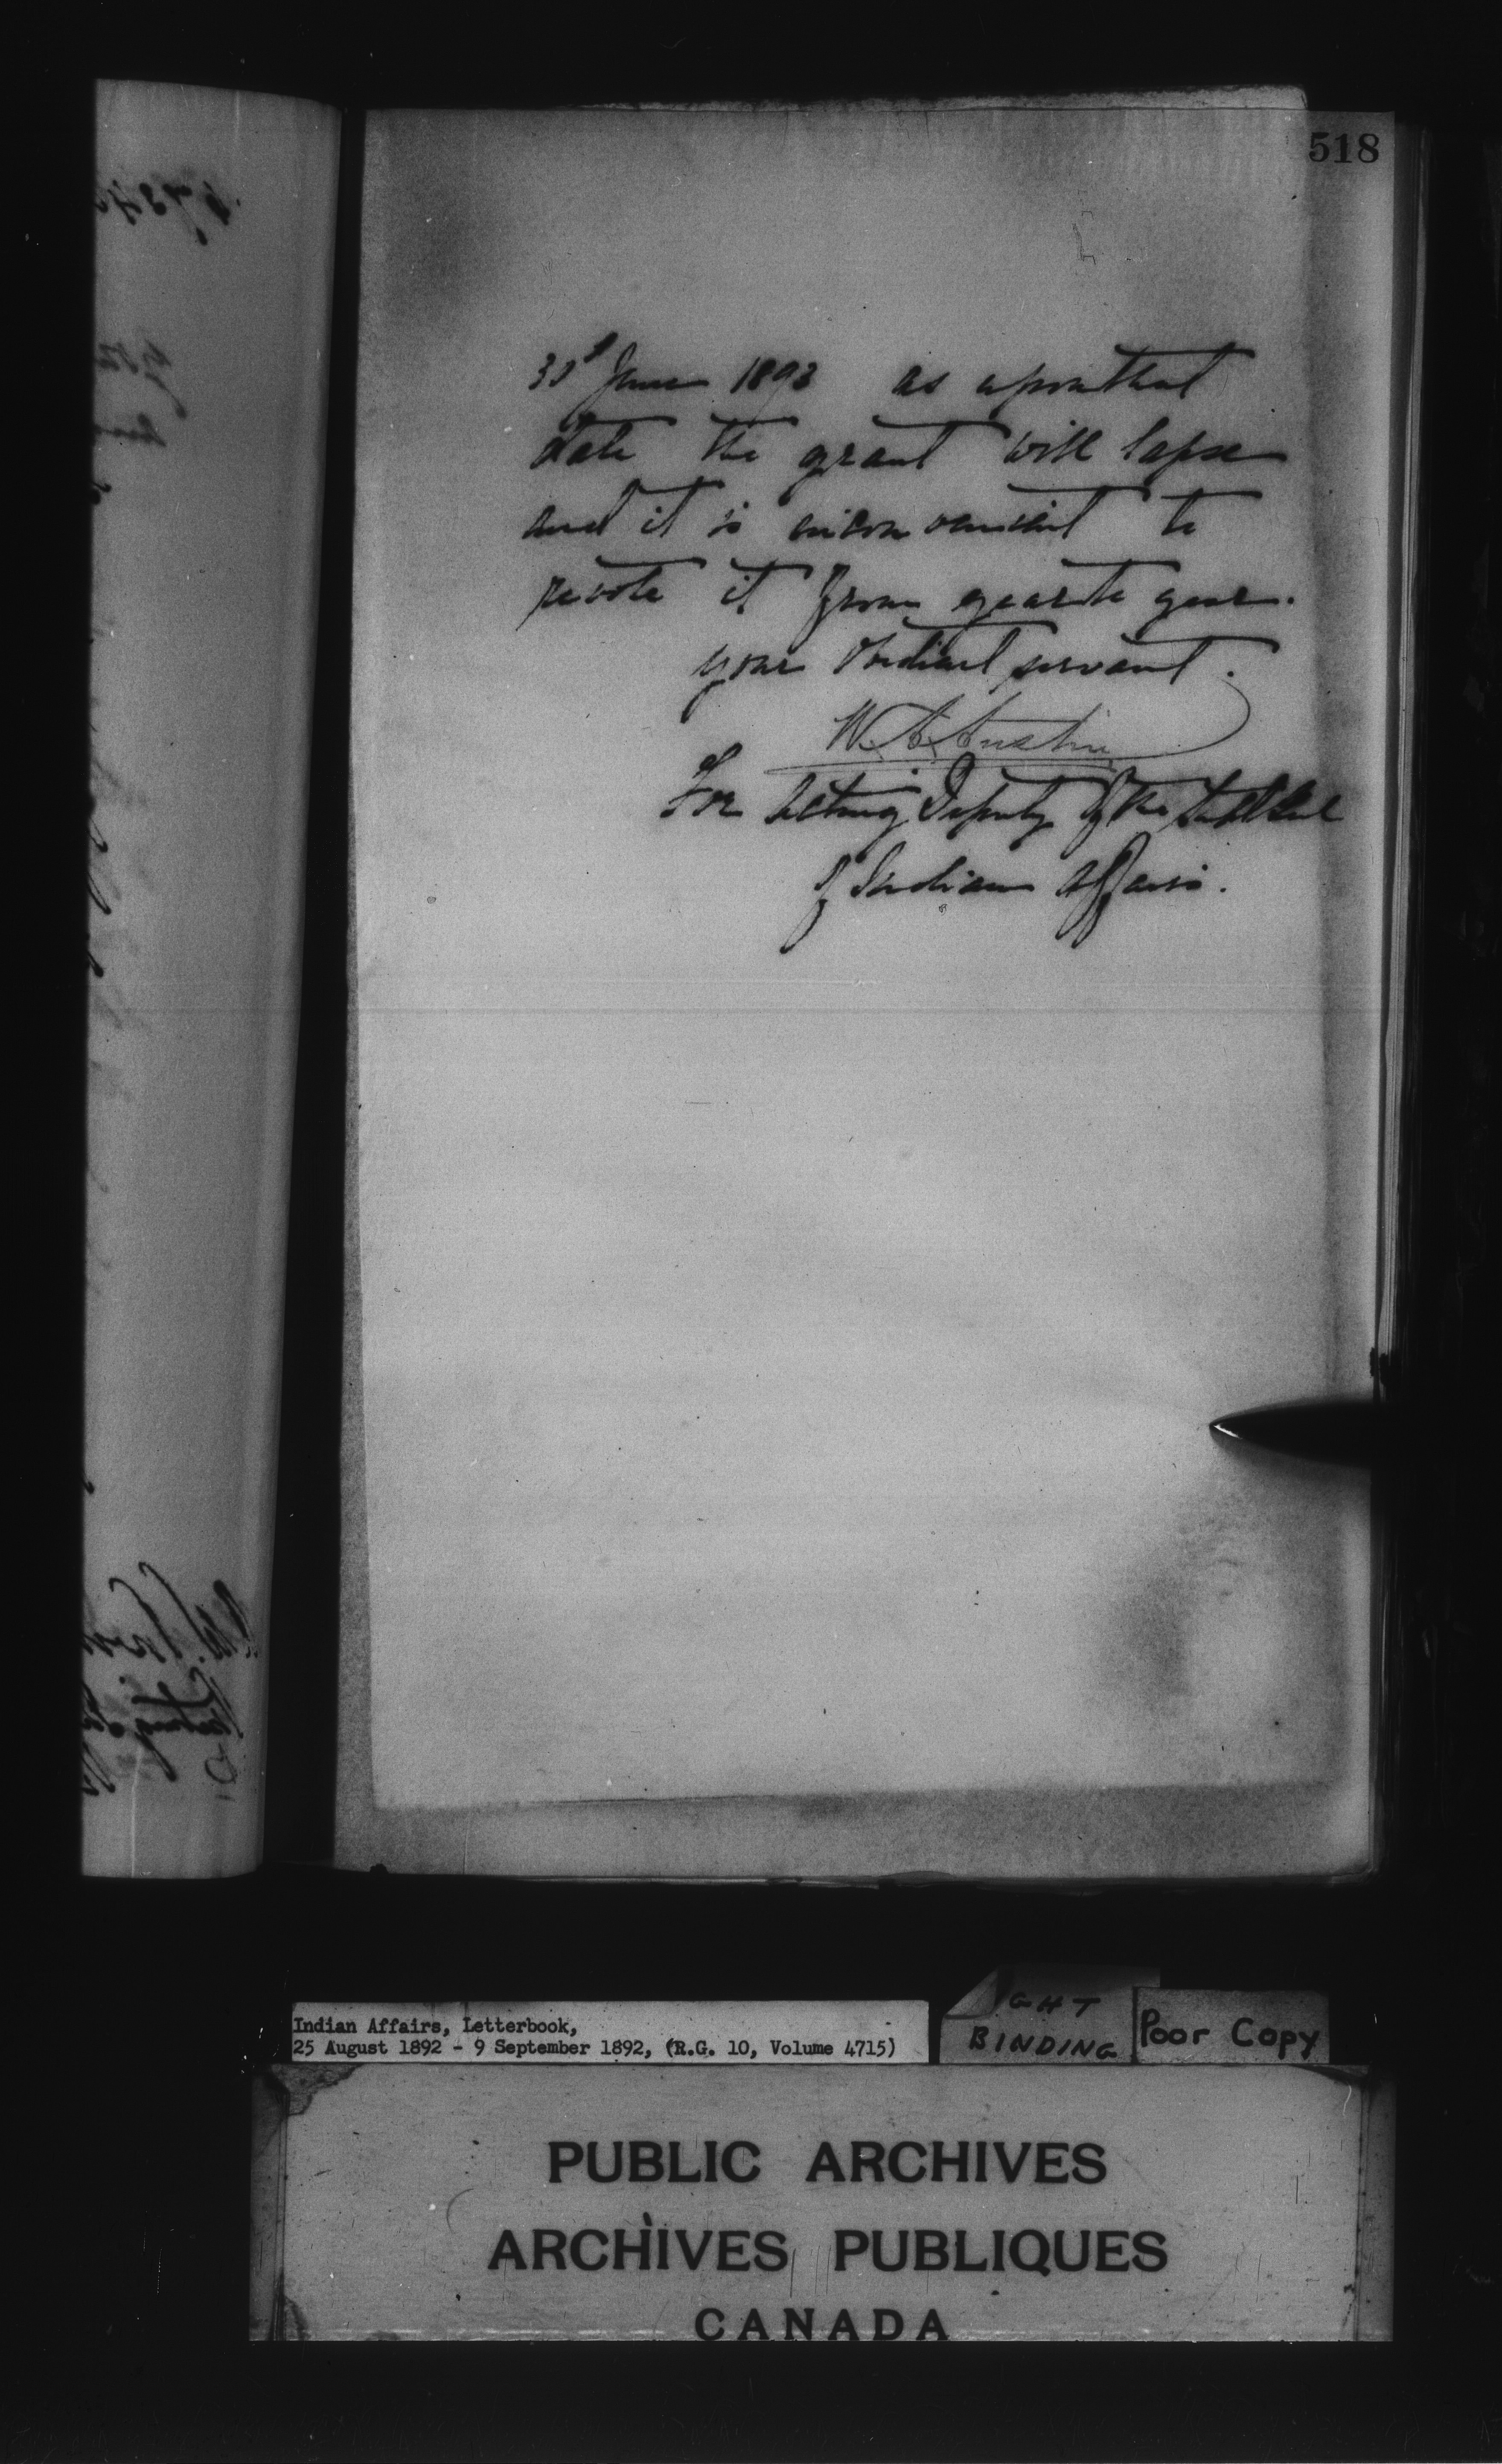 518
30th June 1893 as upon that
date the grant will lapse
and it is inconvenient to
revote it from year to year.
your obedient servant.
W. A. Austin
For Acting Deputy of the Supt Genl
of Indian Affairs.
Indian Affairs, Letterbook,
25 August 1892 - 9 September 1892, (R.G. 10, Volume 4715)
BINDING
Poor Copy
PUBLIC ARCHIVES
ARCHIVES PUBLIQUES
CANADA